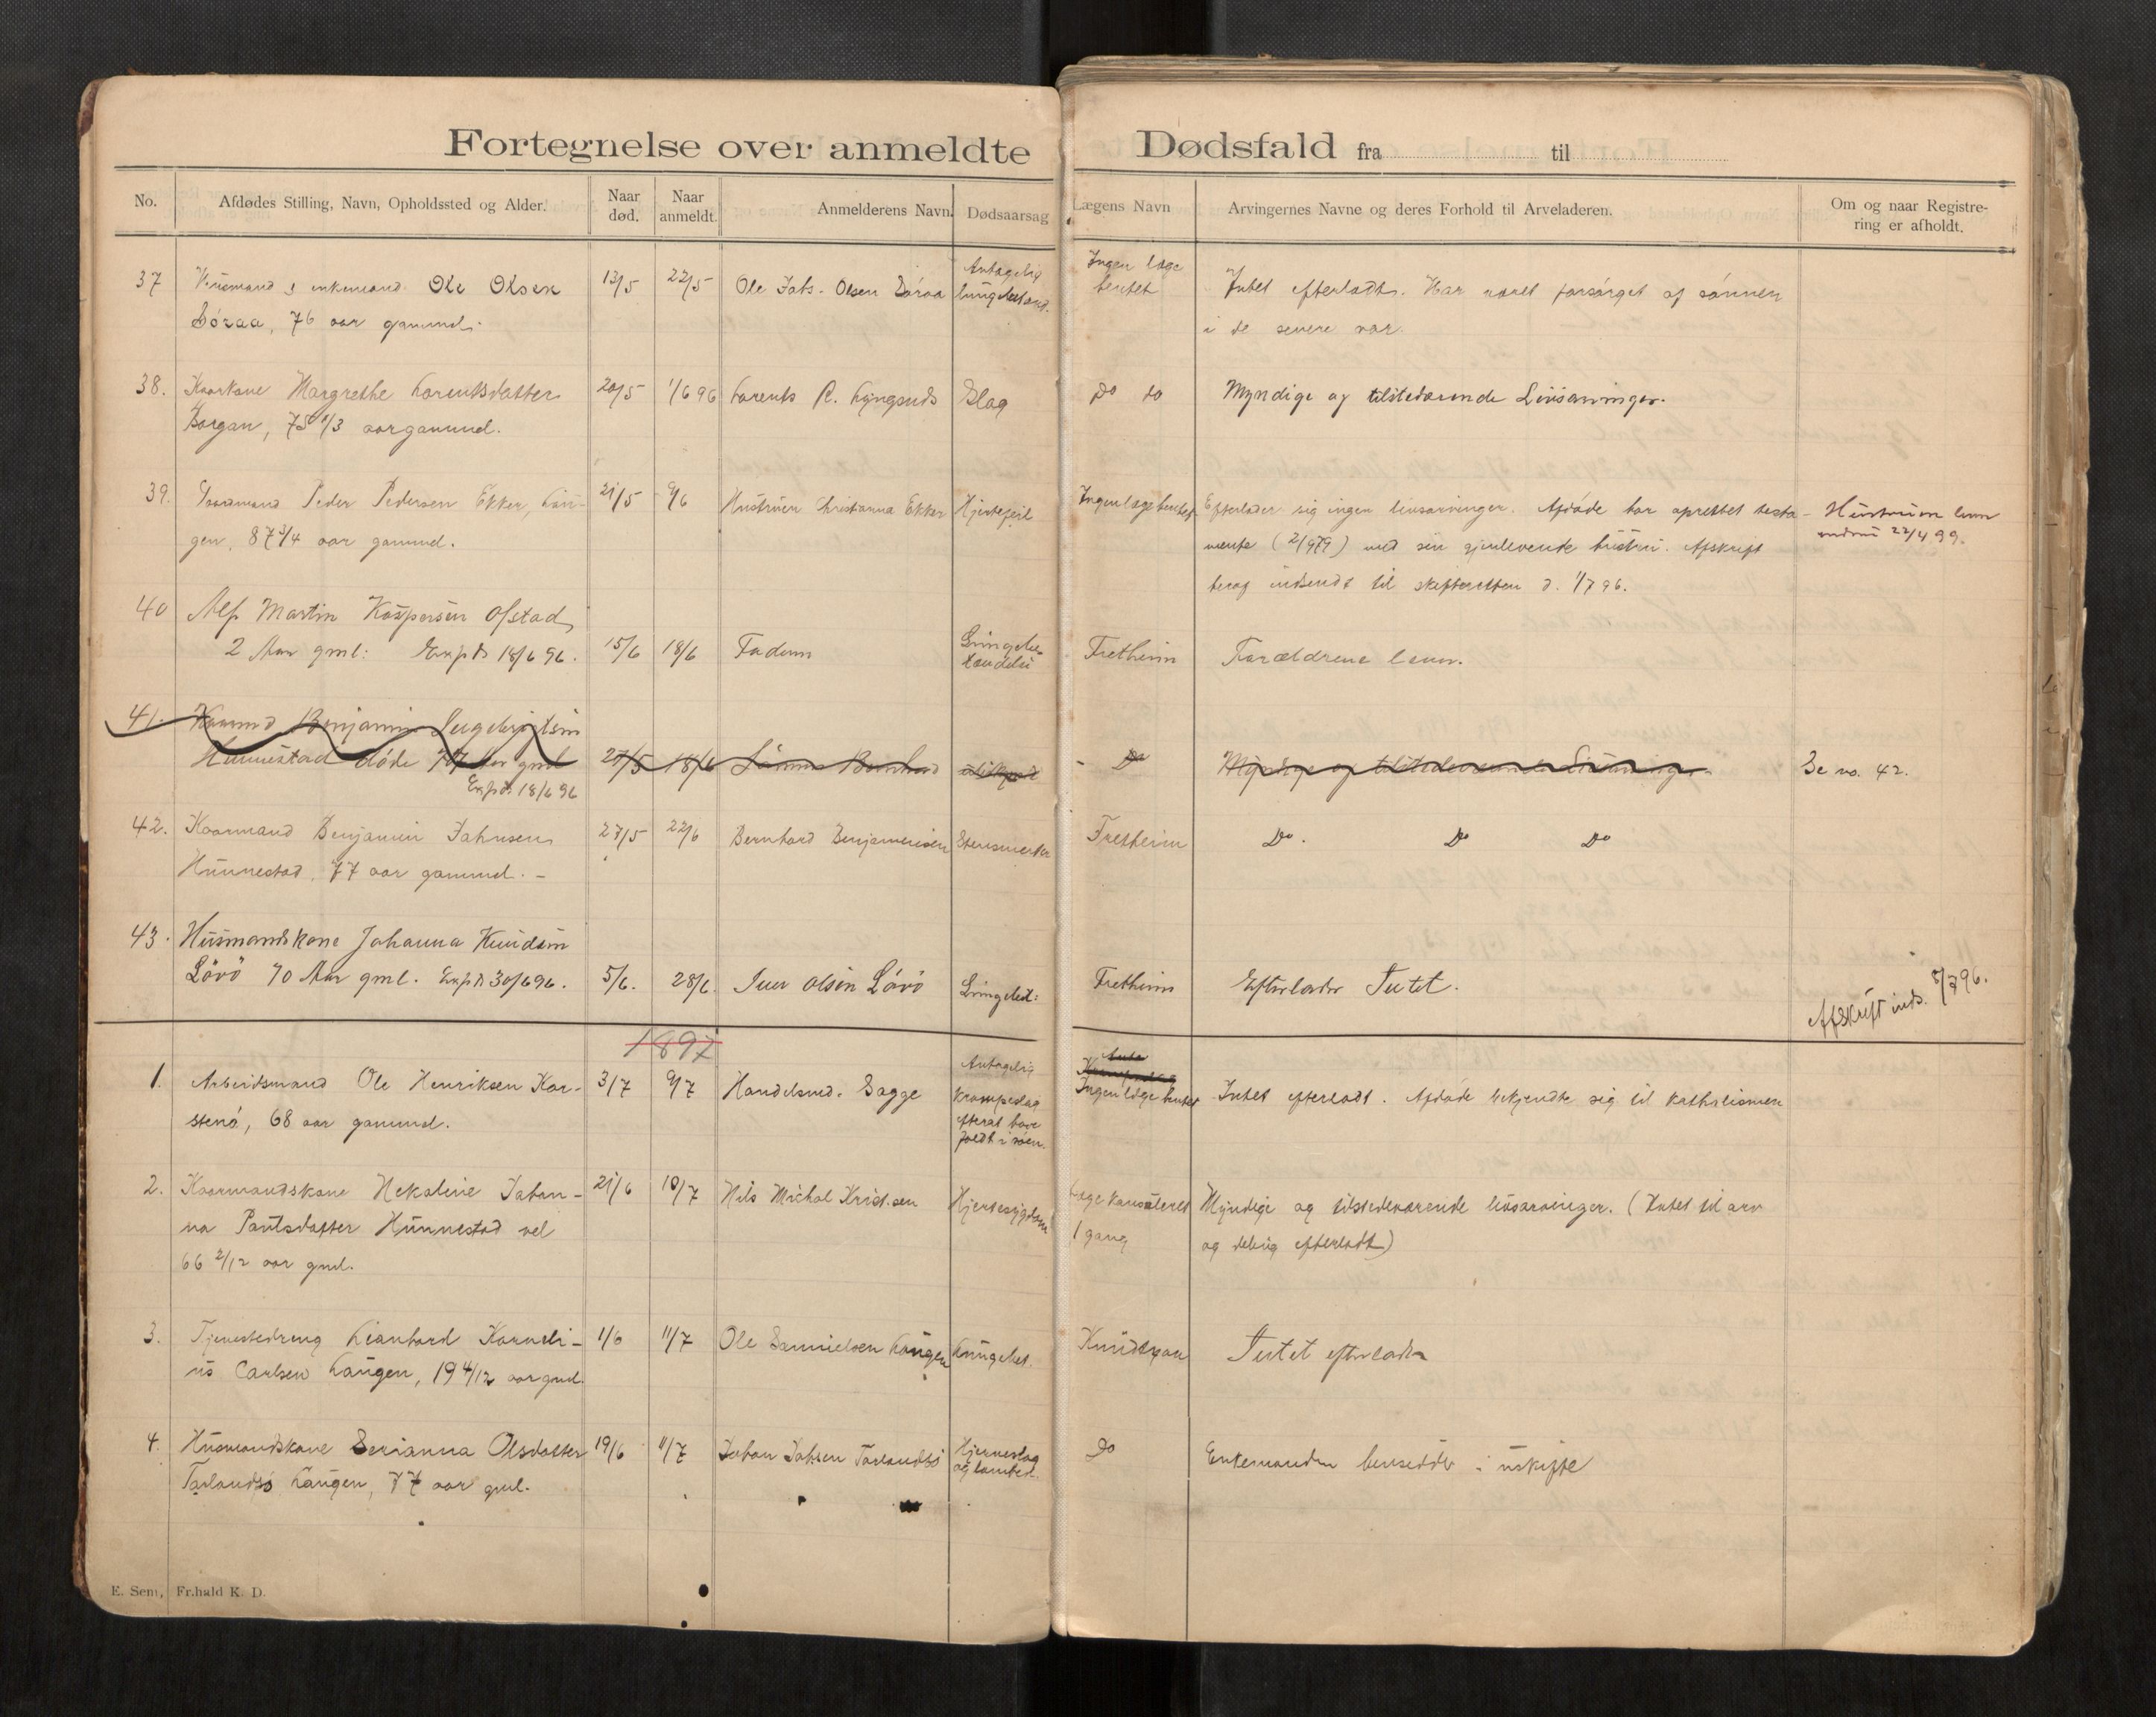 Fortegnelse over anmeldte Dødsfald fra til
No. Afdødes Stilling, Navn, Opholdssted og Alder. Naar død. Naar anmeldt. Anmelderens Navn. Dødsaarsag Lægens Navn Arvingernes Navne og deres Forhold til Arveladeren. Om og naar Registrering er afholdt.
37 Husmand & enkemand Ole Olsen 13/5 22/5 Ole Johs. Olsen Söraa Antagelig Ingen læge hentet Intet efterladt. Har været forsörget af sönnen
Söraa, 76 aar gammel. i de senere aar.
38. Kaarkone Margrethe Lorentsdatter 20/5 1/6 96 Lorents P. Lyngsnds Slag Do do Myndige og tilstedværende Livsarvinger.
Borgan, 75 1/3 aar gammel.
39. Gaardmand Peder Pedersen Ekker, Lau- 21/5 9/6 Hustruen Christianna Ekker Hjertefeil Ingen læge hentet Efterlader sig ingen livsarvinger. Afdöde har oprettet testa- Hustruen lever
gen, 87 3/4 aar gammel. mente (2/9 79) med sin gjenlevende hustru. Afskrift endnu 22/4 99.
heraf indsendt til skifteretten d. 1/7 96.
40 Alf Martin Kaspersen Ofstad
2 Aar gml: Exp.d 18/6 96. 15/6 18/6 Faderen Fretheim Forældrene lever.
41. Kaarmd Benjamin Ingebrigtsen
Hunnestad döde 77 Aar gml 27/5 18/6 Sönnen Bernhard Do Myndige og tilstedeværende Livsarvinger Se no. 42.
Exp.d. 18/6 96
42. Kaarmand Benjamin Johnsen 27/5 22/6 Bernhard Benjaminsen Stensmerter Fretheim Do. Do Do
Hunnestad, 77 aar gammel. -
43. Husmandskone Johanna Knudsen
Lövö 70 Aar gml. Exp.d 30/6 96. 5/6. 28/6. Iver Olsen Lövö Lungebet: Fretheim Efterlader Intet. Afskrift inds. 8/7 96.
1897
1. Arbeidsmand Ole Henriksen Kar- 3/7 9/7 Handelsmd. Sagge Antagelig krampeslag efterat have faldt i söen. Ingen læge hentet Intet efterladt. Afdöde bekjendte sig til katholismen
stenö, 68 aar gammel.
2. Kaarmandskone Nekoline Johan- 21/6 10/7 Nils Michal Krist.sen Hjertesygdom Læge konsuleret 1 gang Myndige og tilstedeværende livsarvinger. (Intet til arv
na Paulsdatter Hunnestad vel og deling efterladt)
66 2/12 aar gml.
3. Tjenestedreng Leonhard Korneli- 1/6 11/7 Ole Danielsen Laugen Lungebet. Knudtzon Intet efterlader
us Carlsen Laugen, 19 4/12 aar gml.
4. Husmandskone Serianna Olsdatter 19/6 11/7 Johan Johsen Torlandsö Hjerneslag og lamhed. Do Enkemanden hensidder i uskifte
Torlandsö Laugen, 77 aar gml.
E. Sem, Fr.hald K. D.